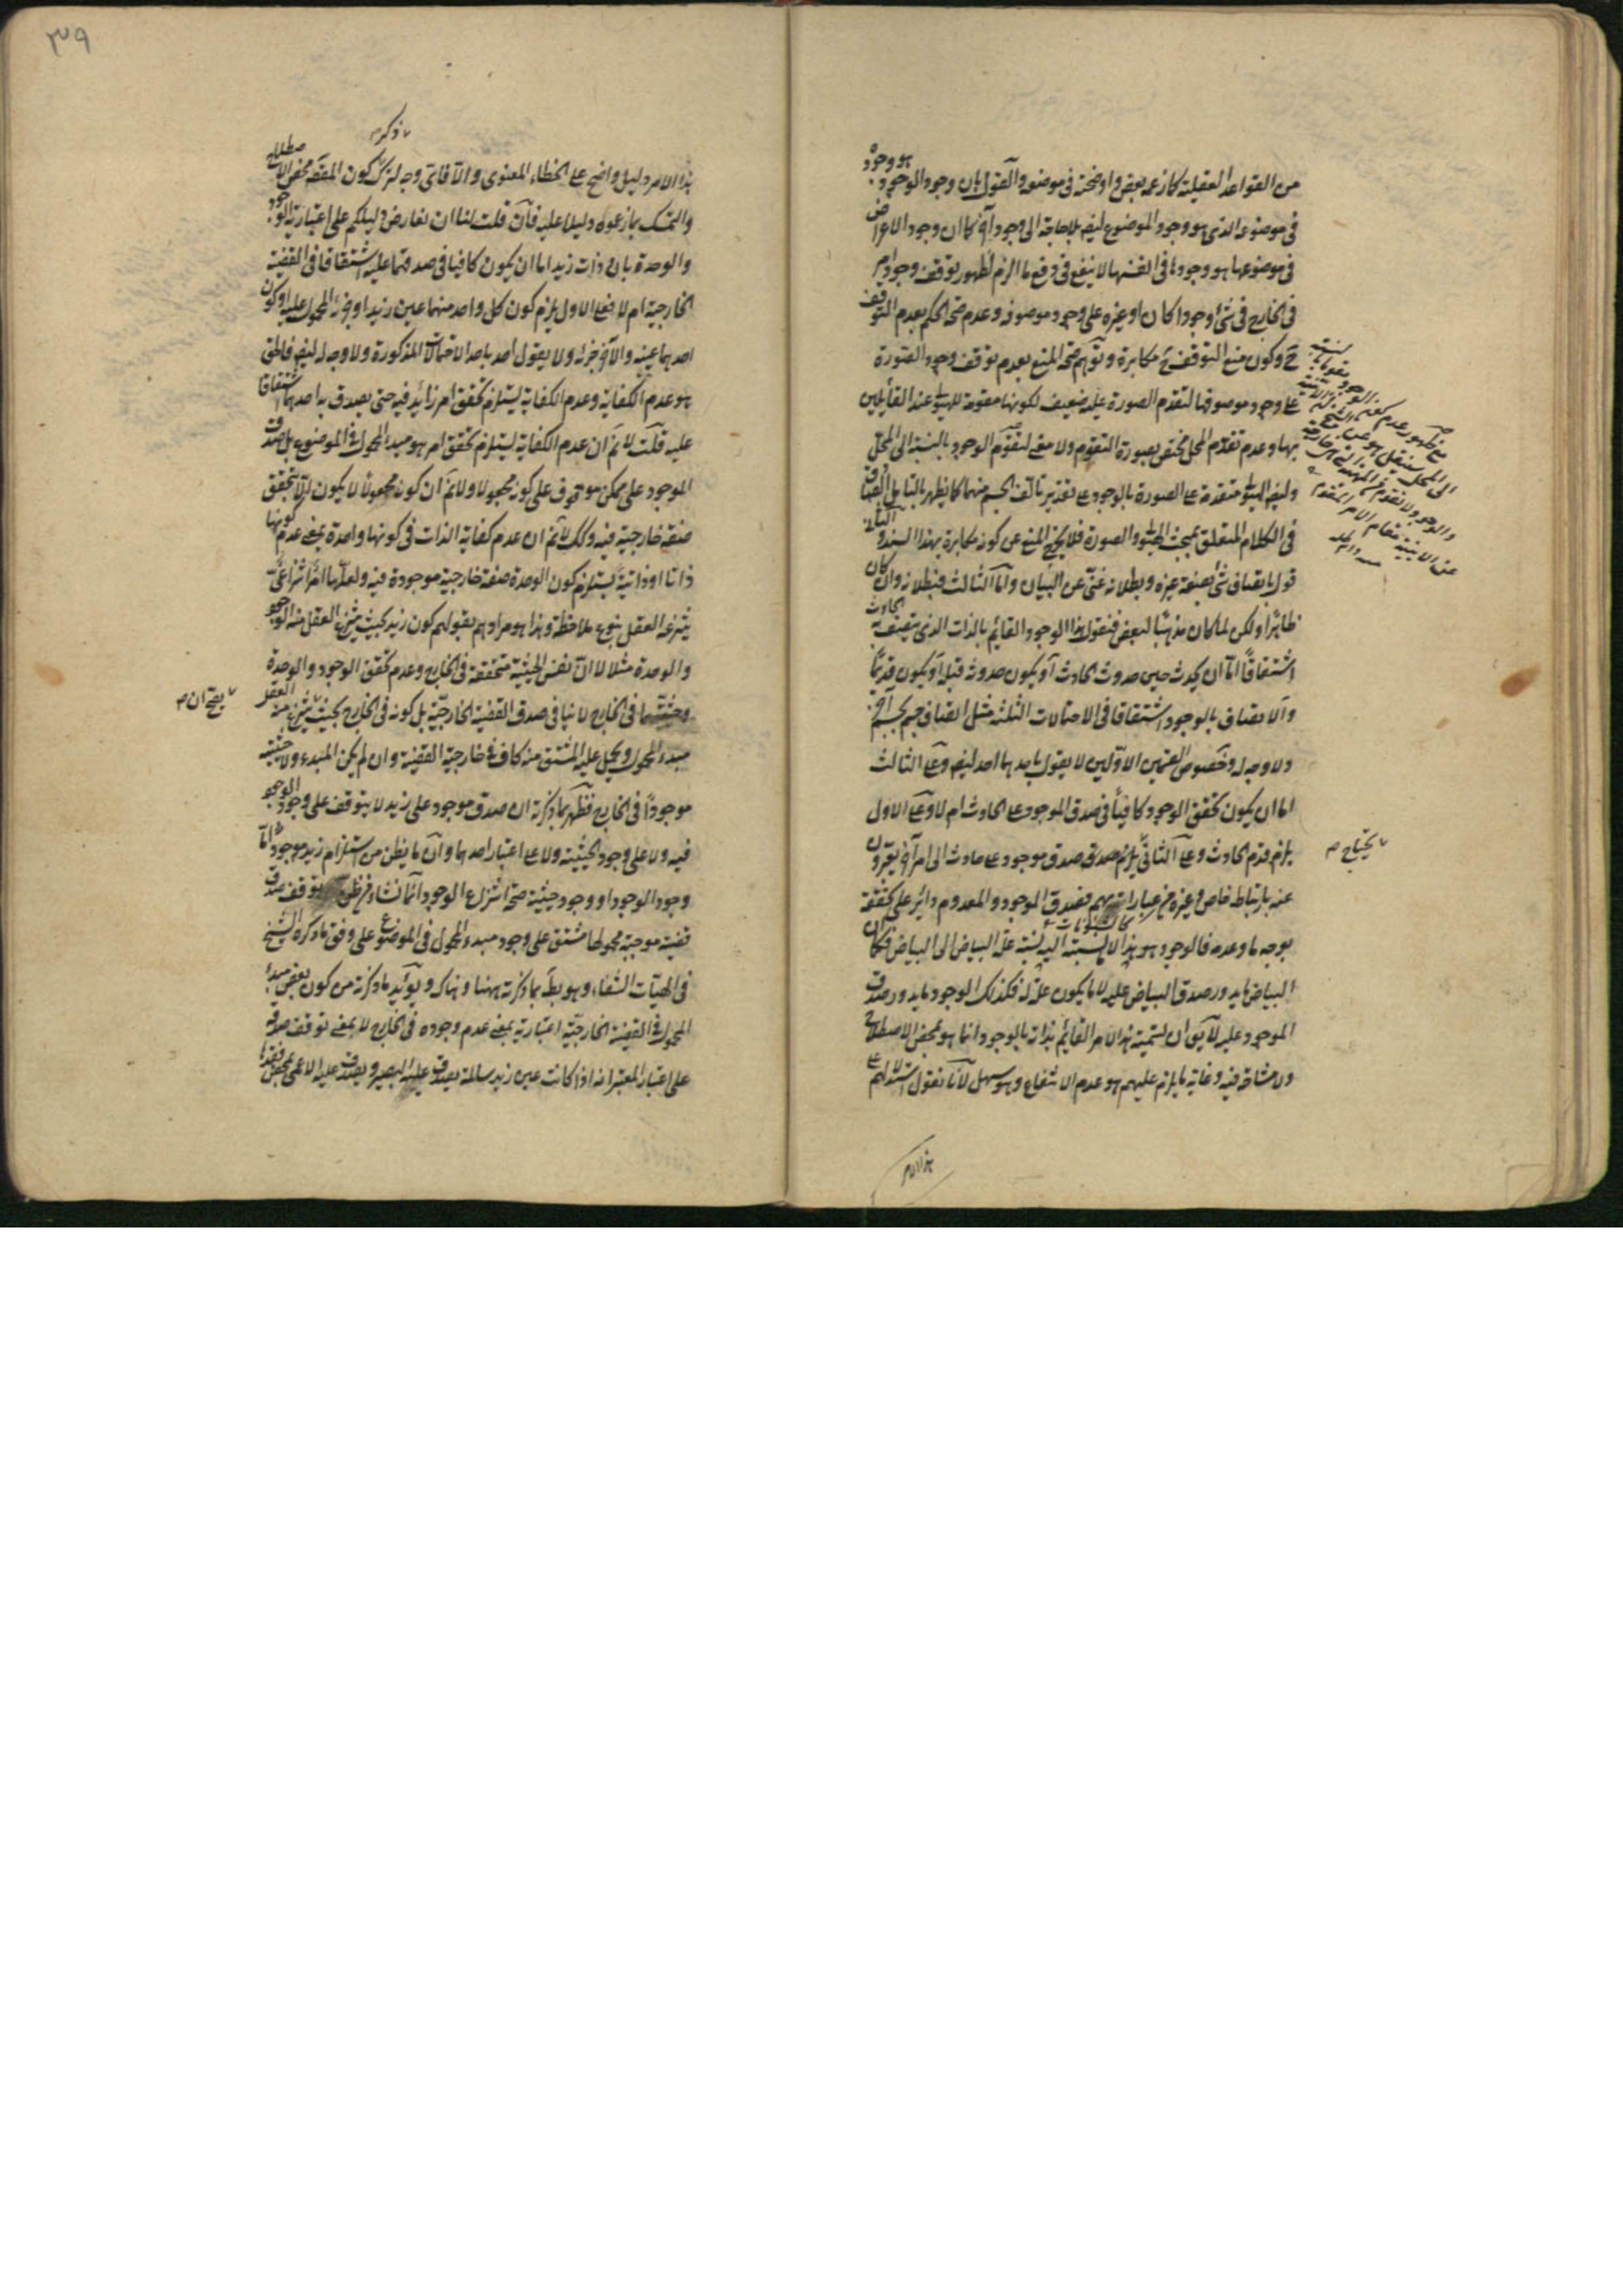 من القواعد العقلية كما زعمه بعض واوضحته في موضعه والقول بان وجود الوجود هو وجوده
في موضوعه الذي هو وجود الموضوع ليس بلا حاجة الى وجود آخر كما ان وجود الاعراض
في موضوعها هو وجودها في انفسها لا ينفع في دفع ما الزم لظهور توقف وجود امر
في الخارج في شئ وجودا كان او غيره على وجود موصوفه وعدم صحة الحكم بعدم التوقف
ح وكون منع التوقف ح مكابرة وتوهم صحة المنع بعدم توقف وجود الصورة
على وجود موصوفها لتقدم الصورة عليه ضعيف لكونها مقومة للهيولى عند القائلين
بها وعدم تقدم المحل مختص بصورة التقوم ولا معنى لتقوم الوجود بالنسبة الى المحل
وليس الهيولى متقدمة على الصورة بالوجود على تقدير تألف الجسم منهما كما يظهر بالتأمل الصادق
في الكلام المتعلق بمبحث الهيولى والصورة فلا يخرج المنع عن كونه مكابرة بهذا السند و
قول باتصاف شئ بصفة غيره وبطلانه غني عن البيان واما الثالث فبطلانه وان كان
ظاهرا ولكن لما كان مذهبا لبعض فنقول هذا الوجود القائم بالذات الذي يتصف به الحادث
اشتقاقا اما ان يحدث حين حدوث الحادث او يكون حدوثه قبله او يكون قديما
والاتصاف بالوجود اشتقاقا في الاحتمالات الثلثة مثل اتصاف جسم بجسم آخر
ولا وجه له وخصوص القسمين الاولين لا يقول باحدهما احد ليس وعلى الثالث
اما ان يكون تحقق الوجود كافيا في صدق الموجود على الحادث ام لا وعلى الاول
يلزم قدم الحادث وعلى الثاني يلزم صدق موجود على حادث الى امر آخر يعبرون
يحتاج م
عنه بارتباط خاص وغيره من عباراتهم فصدق الموجود والمعدوم دائر على تحققه
بوجه ما وعدمه فالوجود هو هذا لا نسبته اليه نسبة علة البياض الى البياض فكما ان
البياض ما يدور صدق البياض عليه لا ما يكون علة له فكذلك الوجود ما يدور صدق
الموجود عليه لا يق ان تسمية هذا الامر القائم بذاته بالوجود انما هو بمحض الاصطلاح
ولا مشاحة فيه وغاية ما يلزم عليهم هو عدم الانتفاع وهو سهل لانا نقول استدلالهم على
هذا الامر
٣٩
ذكر م
هذا الامر دليل واضح على الخطاء المعنوي والا فاي وجه لترك كون المقصود محض الاصطلاح
والتمسك بما زعموه دليلا عليه فان قلت لنا ان نعارض دليلكم على اعتبارية الوجود
والوحدة بان ذات زيد اما ان يكون كافيا في صدقهما عليه اشتقاقا في القضية
الخارجية ام لا فعلى الاول يلزم كون كل واحد منهما عين زيد او جزئه المحمول عليه او كون
احدهما عينه والآخر جزئه ولا يقول احد باحد الاحتمالات المذكورة ولا وجه له ليس فالحق
هو عدم الكفاية وعدم الكفاية يستلزم تحقق امر زائد فيه حتى يصدق به احدهما اشتقاقا
عليه قلت لا نم ان عدم الكفاية يستلزم تحقق امر هو مبدء المحمول في الموضوع بل صدق
الموجود على ممكن موقوف على كونه مجعولا ولا نم ان كونه مجعولا لا يكون الا بتحقق
صفة خارجية فيه وكذلك لا نم ان عدم كفاية الذات في كونها واحدة بمعنى عدم كونها
ذاتا او ذاتية يستلزم كون الوحدة صفة خارجية موجودة فيه ولعلها امر انتزاعي
ينتزعه العقل بنوع ملاحظة وهذا هو مرادهم بقولهم كون زيد بحيث ينتزع العقل منه الوجود
والوحدة مثلا لا ان نفس الحيثية متحققة في الخارج وعدم تحقق الوجود والوحدة
وحيثيتهما في الخارج لا ينافي صدق القضية الخارجية بل كونه في الخارج بحيث ينتزع منه العقل
يصح ان م
مبدء المحمول ويحمل عليه المشتق منه كاف في خارجية القضية وان لم يكن المبدء ولا حيثيته
موجودا في الخارج فظهر بما ذكرته ان صدق موجود على زيد لا يتوقف على وجود الوجود
فيه ولا على وجود الحيثية ولا على اعتبار احدهما وان ما يظن من استلزام زيد موجود اما
وجود الوجود او وجود حيثية صحة انتزاع الوجود انما نشاء من ظن توقف صدق
قضية موجبة محمولها مشتق على وجود مبدء المحمول في الموضوع على وفق ما ذكره الشيخ
في الهيات الشفاء وهو بطل بما ذكرته ههنا وهناك ويؤيد ما ذكرته من كون بعض مبدء
المحمول في القضية الخارجية اعتبارية بمعنى عدم وجوده في الخارج لا بمعنى توقف صدقه
على اعتبار المعتبر انه اذا كانت عين زيد سالمة يصدق عليه البصير ويصدق عليه الاعمى بمحض فقدها